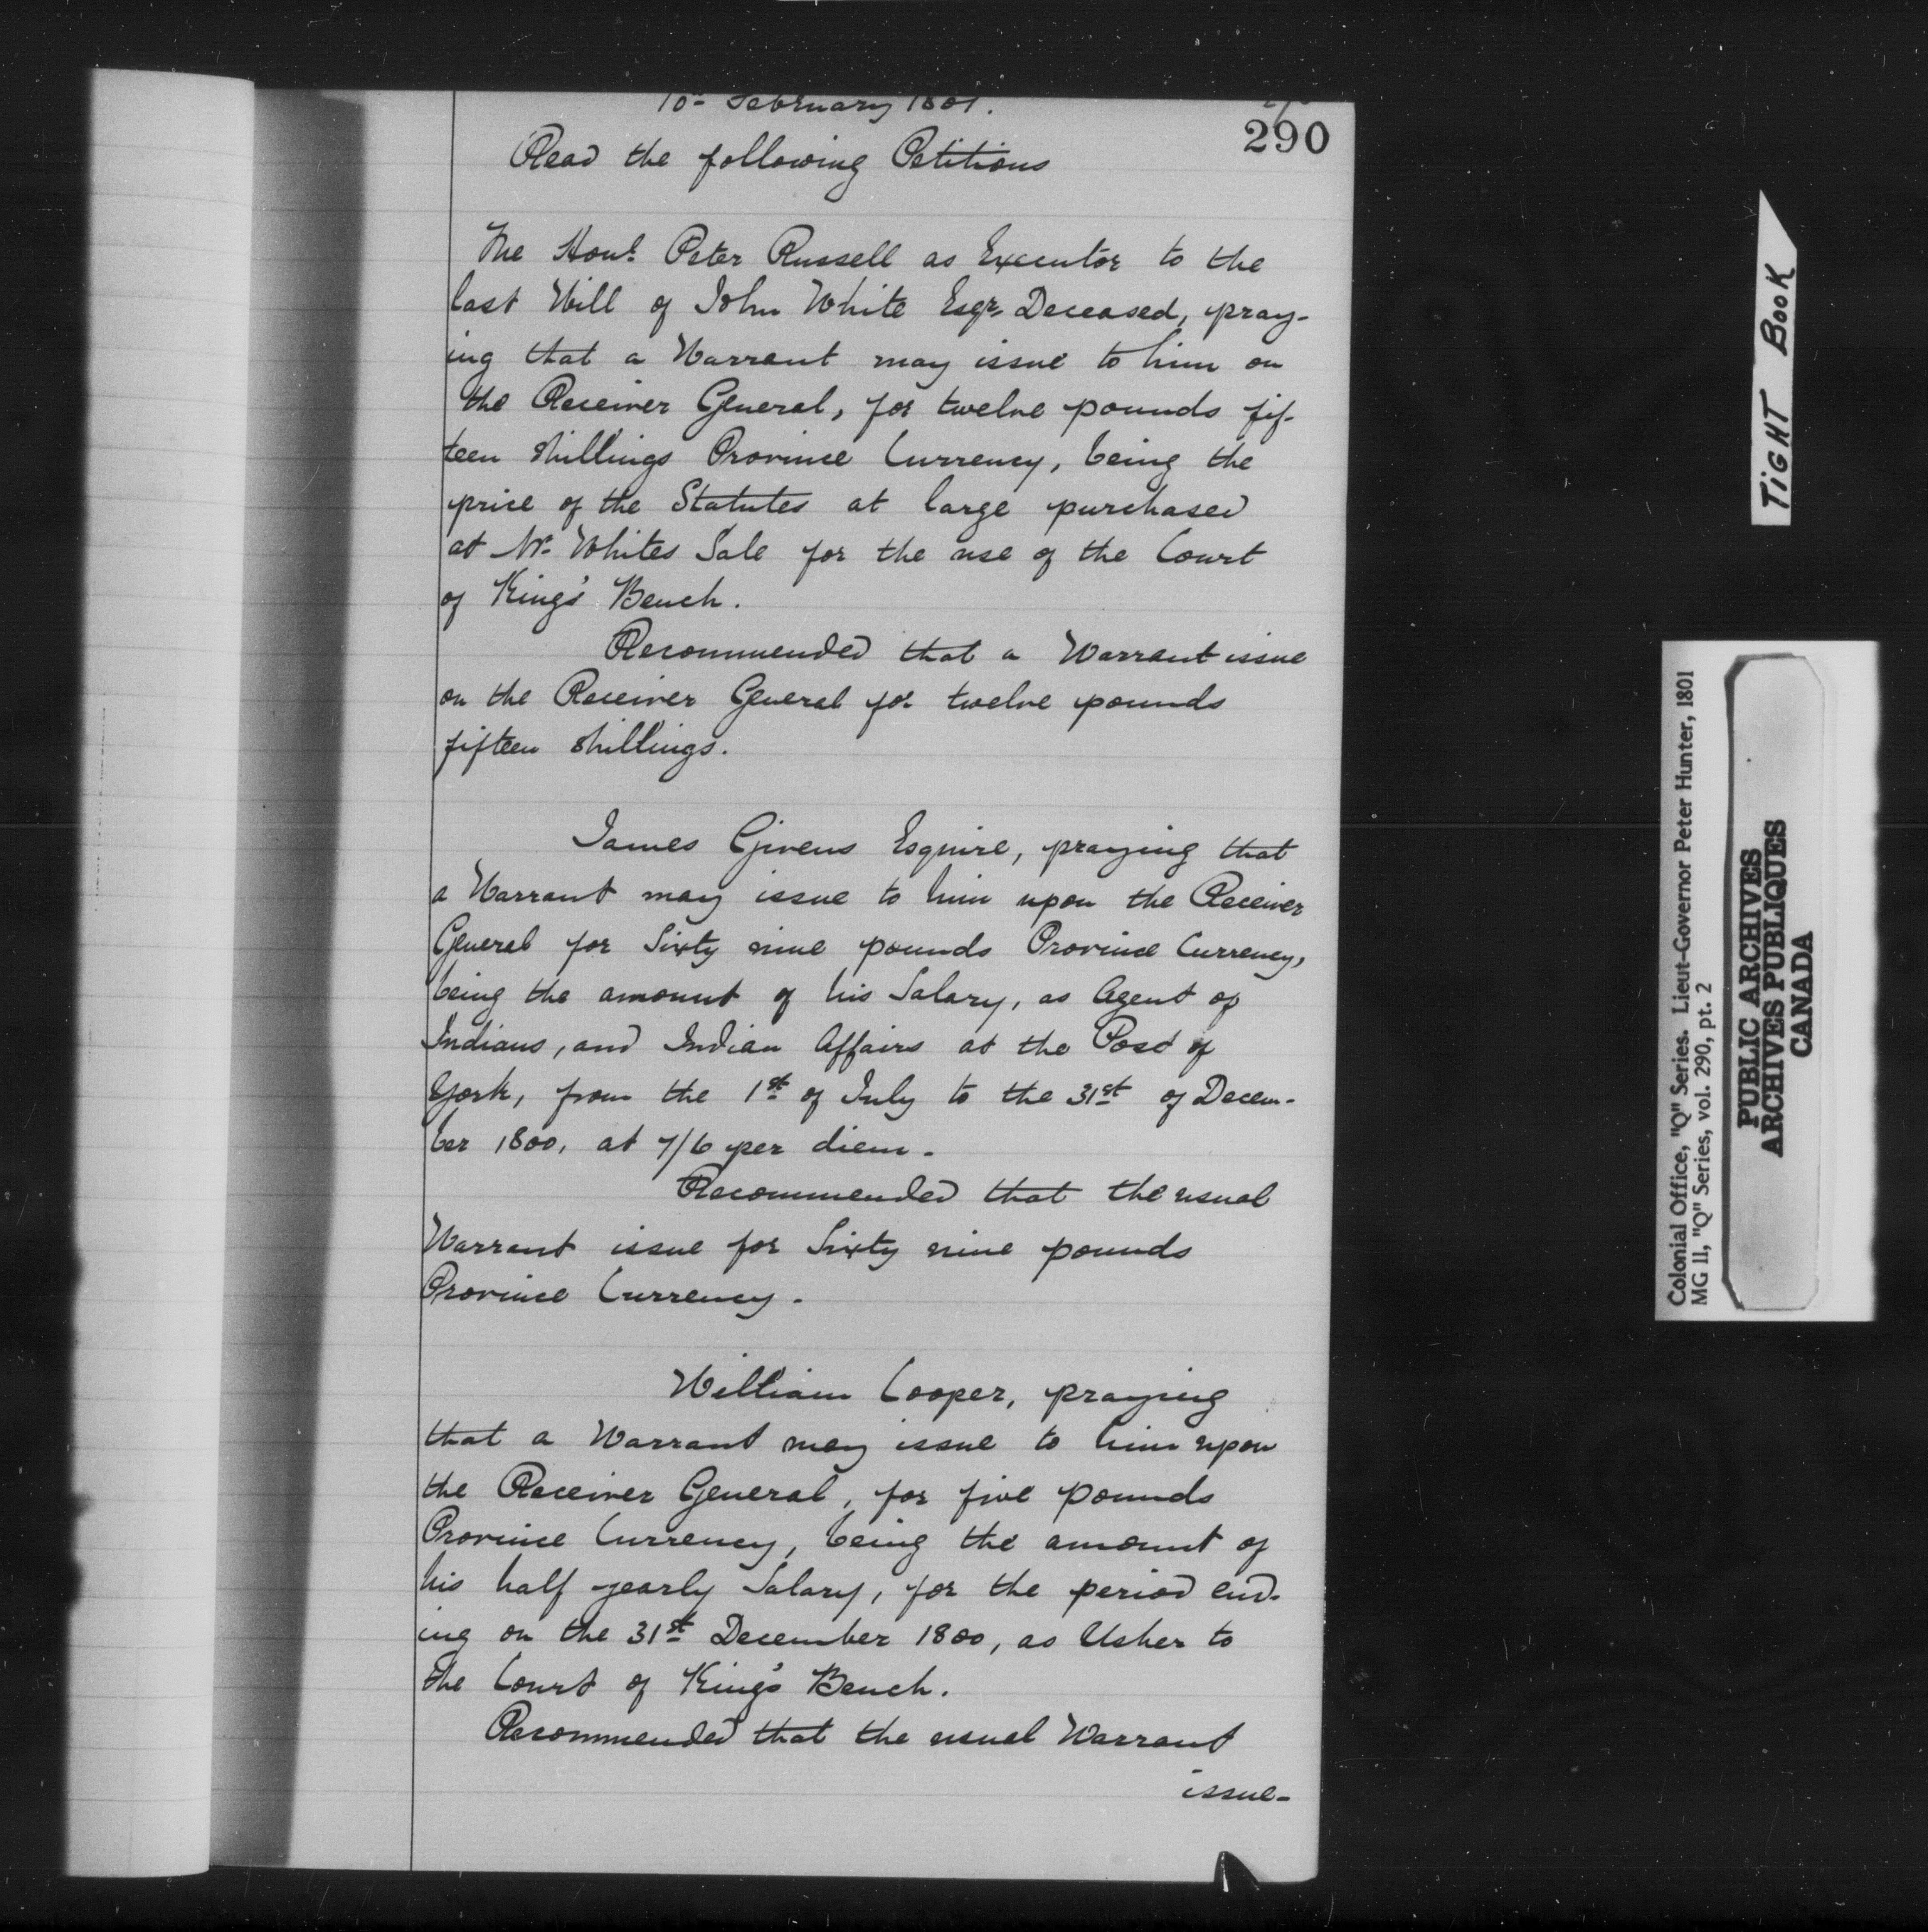 10th February 1801.
290
Read the following Petitions
The Honl. Peter Russell as Executor to the
last Will of John White Esqr. Deceased, pray-
ing that a Warrant may issue to him on
the Receiver General, for twelve pounds fif-
teen shillings Province Currency, being the
price of the Statutes at large purchased
at Mr. Whites Sale for the use of the Court
of King's Bench.
Recommended that a Warrant issue
on the Receiver General for twelve pounds
fifteen shillings.
James Givens Esquire, praying that
a Warrant may issue to him upon the Receiver
General for Sixty nine pounds Province Currency,
being the amount of his Salary, as Agent of
Indians, and Indian Affairs at the Post of
York, from the 1st of July to the 31st of Decem-
ber 1800, at 7/6 per diem.
Recommended that the usual
Warrant issue for Sixty nine pounds
Province Currency.
William Cooper, praying
that a Warrant may issue to him upon
the Receiver General, for five pounds
Province Currency, being the amount of
his half yearly Salary, for the period end-
ing on the 31st December 1800, as Usher to
the Court of King's Bench.
Recommended that the usual Warrant
issue-
TIGHT BOOK
Colonial Office, "Q" Series. Lieut-Governor Peter Hunter, 1801
MG 11, "Q" Series, vol. 290, pt. 2
PUBLIC ARCHIVES
ARCHIVES PUBLIQUES
CANADA